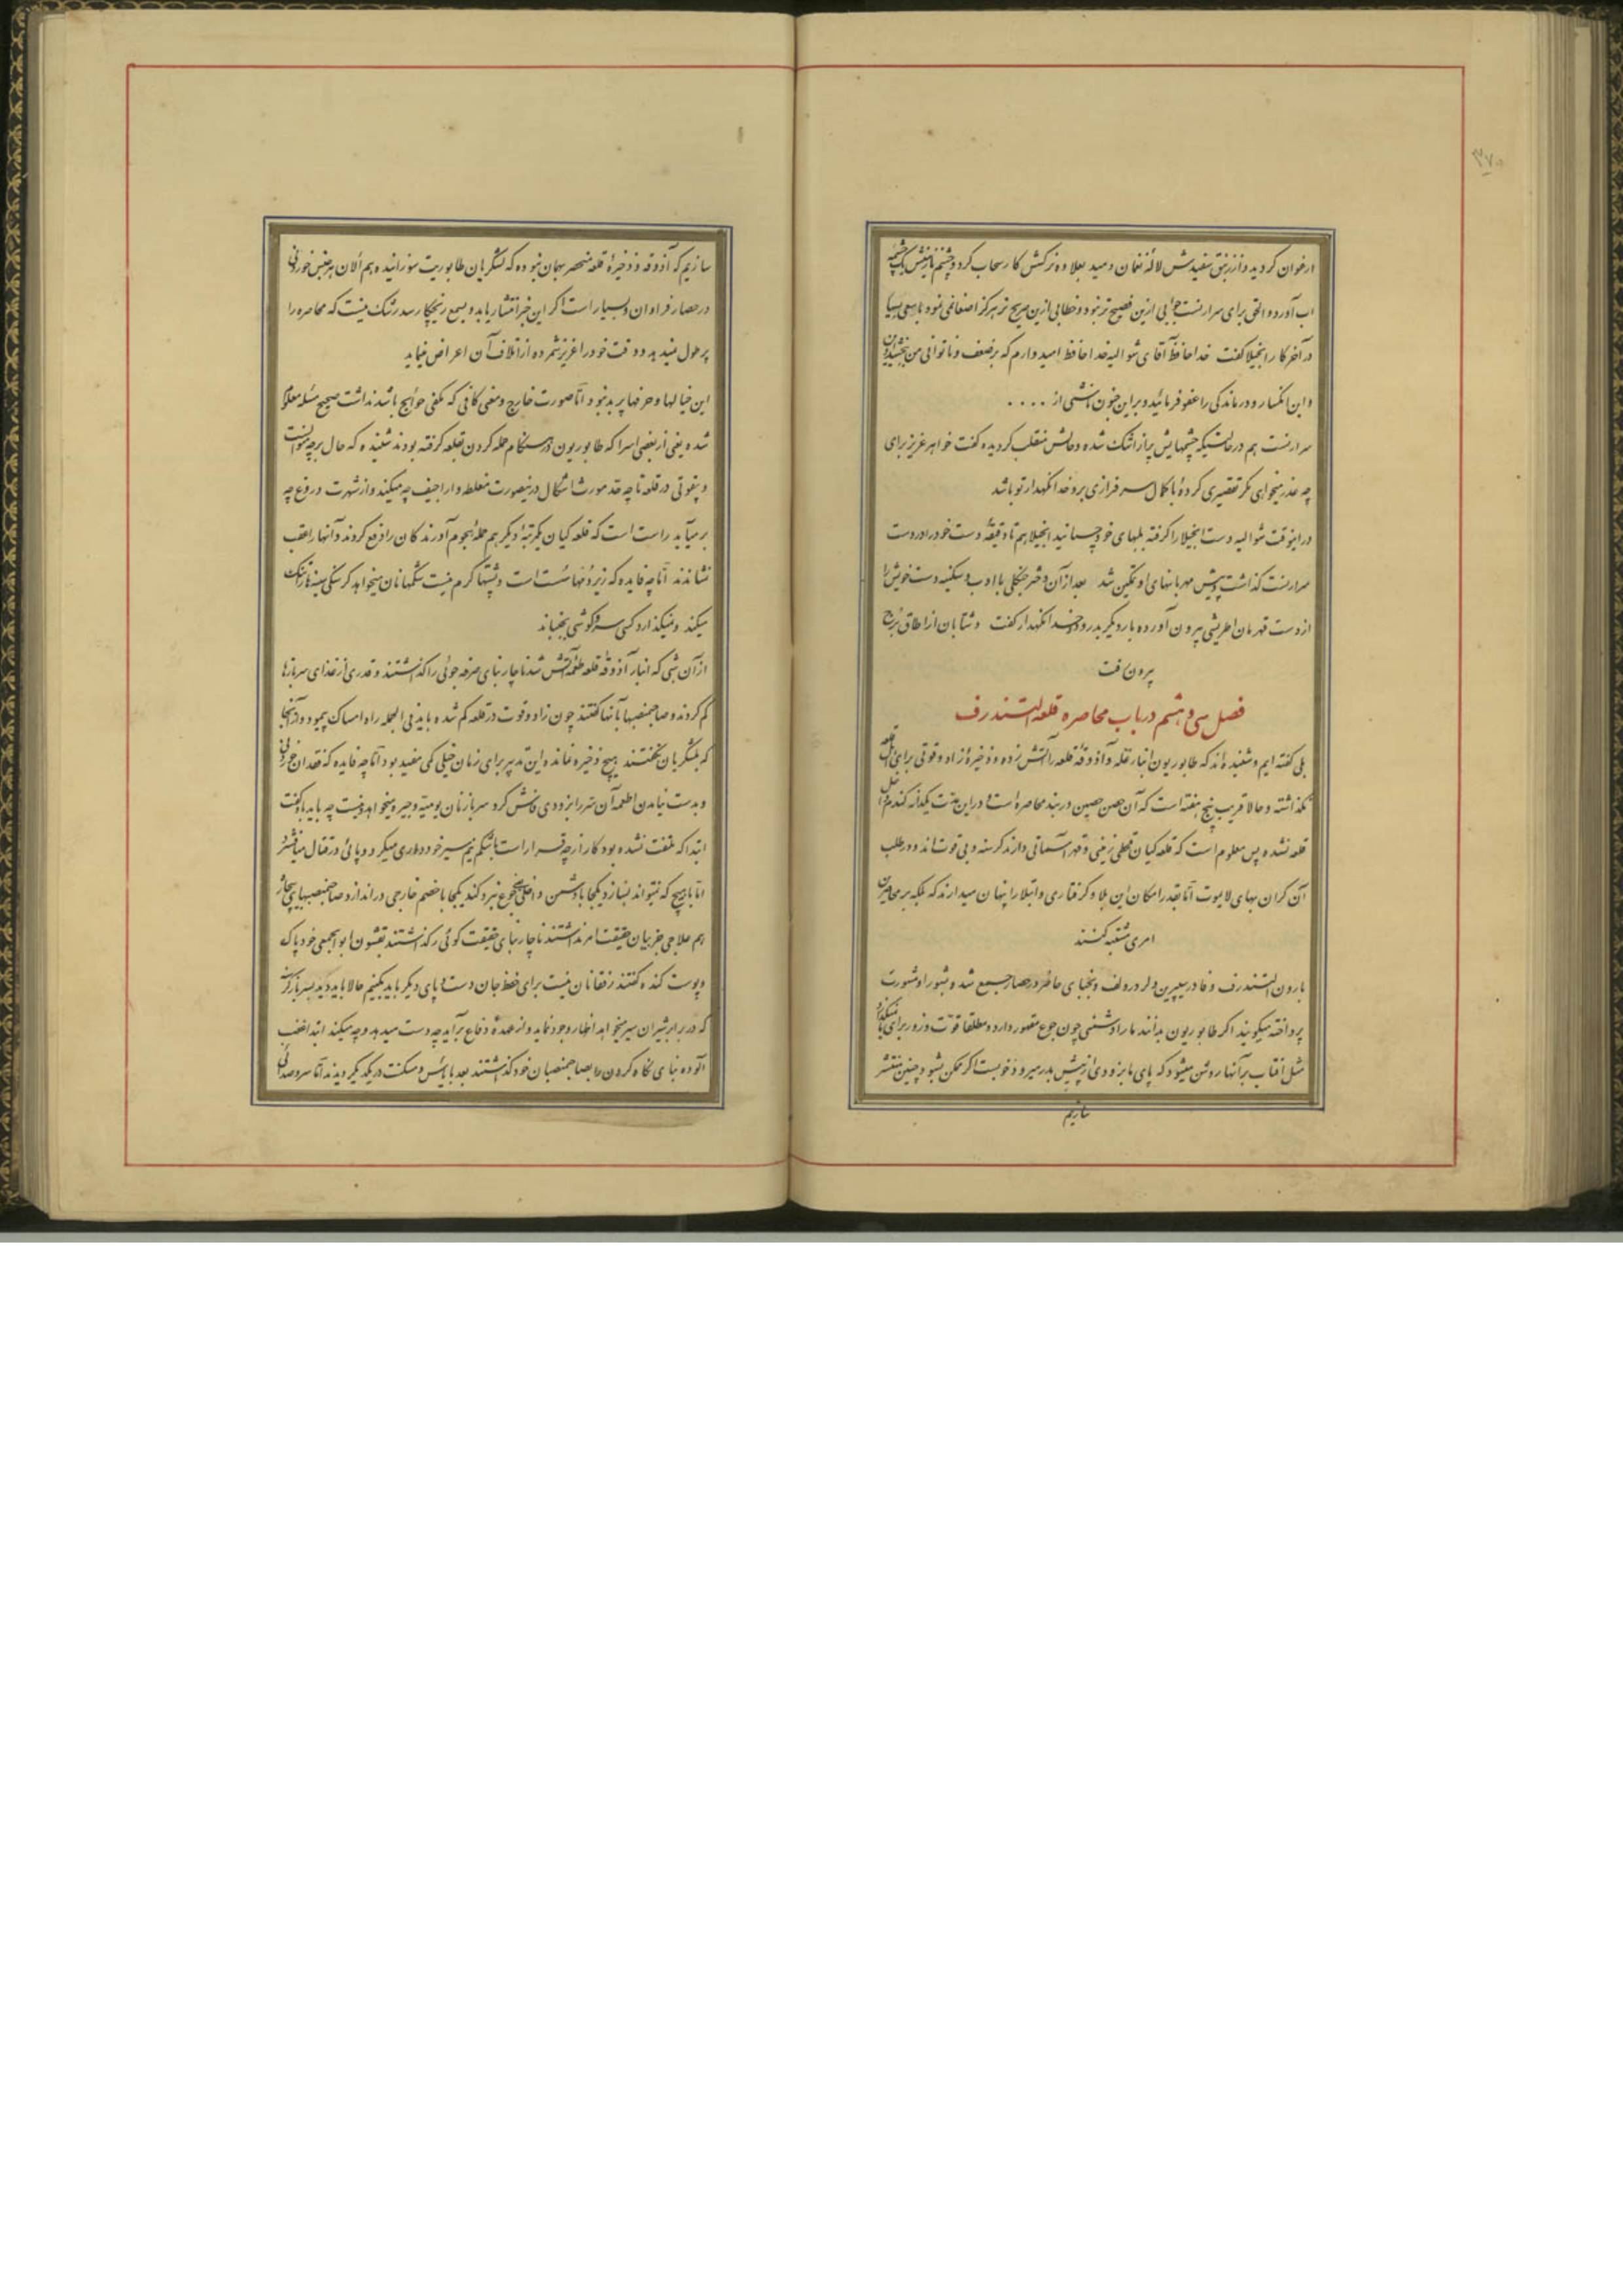 ۳۷۰
ارغوان کردید و از زنبق سفیدش لاله نعمان دمید بعلاوه نرکش کار سحاب کرد و چشم نازنینش یک چشمه
اب آورد و الحق برای سرارنست جوابی ازین فصیح تر نبود و خطابی ازین صریح تر هرکز اصغا نمی نمود با سعی بسیار
در آخر کار انجیلا کفت خدا حافظ آقای شوالیه خدا حافظ امیدوارم که بر ضعف و ناتوانی من ببخشید
و این انکسار و درماندکی را عفو فرمائید و براین خون ناشی از . . . .
سرارنست هم در حالتیکه چشمهایش پر از اشک شده و حالش منقلب کردیده کفت خواهر عزیز برای
چه عذر میخواهی مکر تقصیری کرده با کمال سرفرازی برو خدا نکهدار تو باشد
در اینوقت شوالیه دست انجیلا را کرفته بلبهای خود چسبانید انجیلا هم تا دقیقه دست خود را در دست
سرارنست کذاشت و پیش مهربانیهای او تمکین شد بعد از آن دختر جنکلی با ادب و سکینه دست خویش را
از دست قهرمان اطریشی بیرون آورده بار دیکر بدرود و خدا نکهدار کفت و شتابان از اطاق برج
بیرون رفت
فصل سی و هشتم در باب محاصره قلعه التسندرف
بلی کفته ایم و شنیده اند که طابوریون انبار غله و آذوقه قلعه را آتش زده و ذخیره زاد و قوتی برای اهل قلعه
نکذاشته و حالا قریب پنج هفته است که آن حصن حصین در بند محاصره است و در این مدت یکدانه کندم داخل
قلعه نشده پس معلوم است که قلعه کیان قحطی زمینی و قهر آسمانی دارند کرسنه و بی قوت اند و در طلب
آن کران بهای لایموت اما بقدر امکان این بلا و کرفتاری و ابتلا را پنهان میدارند که بلکه بر محاصرین
امری مشتبه کنند
بارون التسندرف و فادر سیپرین و لرد رودلف و نجبای حاضر در حصار جمیع شد و بشور و مشورت
پرداخته میکویند اکر طابوریون بدانند ما را دشمنی چون جوع مقهور دارد و مطلقا قوت و زور برای ما نمیکذارد
مثل آفتاب بر آنها روشن میشود که پای ما بزودی از پیش بدر میرود خوبست اکر ممکن بشود چنین منتشر
سازیم
سازیم که آذوقه و ذخیره قلعه منحصر بهمان نبوده که لشکریان طابوریت سوزانیده هم الان هر جنس خوردنی
در حصار فراوان و بسیار است اکر این خبر انتشار یابد و بسمع زیچکا رسد شک نیست که محاصره را
پر طول نمیدهد و وقت خود را عزیز شمرده از اتلاف آن اعراض نماید
این خیالها و حرفها پر بد نبود اما صورت خارج و معنی کافی که مکفی حوائج باشد نداشت صحیح مسئله معلوم
شده یعنی از بعضی اسرا که طابوریون در هنکام حمله کردن بقلعه کرفته بودند شنیده که حال بر چه منوالست
و بیقوتی در قلعه تا چه حد مورث اشکال در نیصورت مغلطه و اراجیف چه میکند و از شهرت دروغ چه
برمیآید راست است که قلعه کیان یکمرتبه دیکر هم حمله هجوم آورندکان را دفع کردند و آنها را بعقب
نشاندند اما چه فایده که زیردنها سست است و پشتها کرم نیست شکمها نان میخواهد کرسنکی سینه ها را تنک
میکند و نمیکذارد کسی سر و کوشی بجنباند
از آن شبی که انبار آذوقه قلعه طعمه آتش شد ناچار بنای صرفه جوئی را کذاشتند و قدری از غذای سربازها
کم کردند و صاحبمنصبها بآنها کفتند چون زاد و قوت در قلعه کم شده باید فی الجمله راه امساک پیمود و از آنجا
که بلشکریان نکفتند هیچ ذخیره نمانده این تدبیر برای زمان خیلی کمی مفید بود اما چه فایده که فقدان خوردنی
و بدست نیامدن اطعمه آن سر را بزودی فاش کرد سرباز نان یومیه و جیره میخواهد نیست چه باید باو کفت
ابتدا که ملتفت نشده بود کار از چه قرار است با شکم نیم سیر خودداری میکرد و پائی در قتال میافشرد
اما با هیچ که نتواند بسازد یکجا با دشمن داخلی جوع نبرد کند یکجا با خصم خارجی در اندازد صاحبمنصبهای بیچاره
هم علاجی جز بیان حقیقت امر نداشتند ناچار بنای حقیقت کوئی را کذاشتند بقشون ابوابجمعی خود پاک
و پوست کنده کفتند رفقا نان نیست برای حفظ جان دست و پای دیکر باید بکنیم حالا باید دید سرباز کرسنه
که در برابر شیران سیر میخواهد اظهار وجود نماید و از عهده دفاع برآید چه دست میدهد و چه میکند ابتدا غضب
آلوده بنای نکاه کردن را بصاحبمنصبان خود کذاشتند بعد با یأس و مسکنت در یکدیکر دیدند اما سر و صدائی